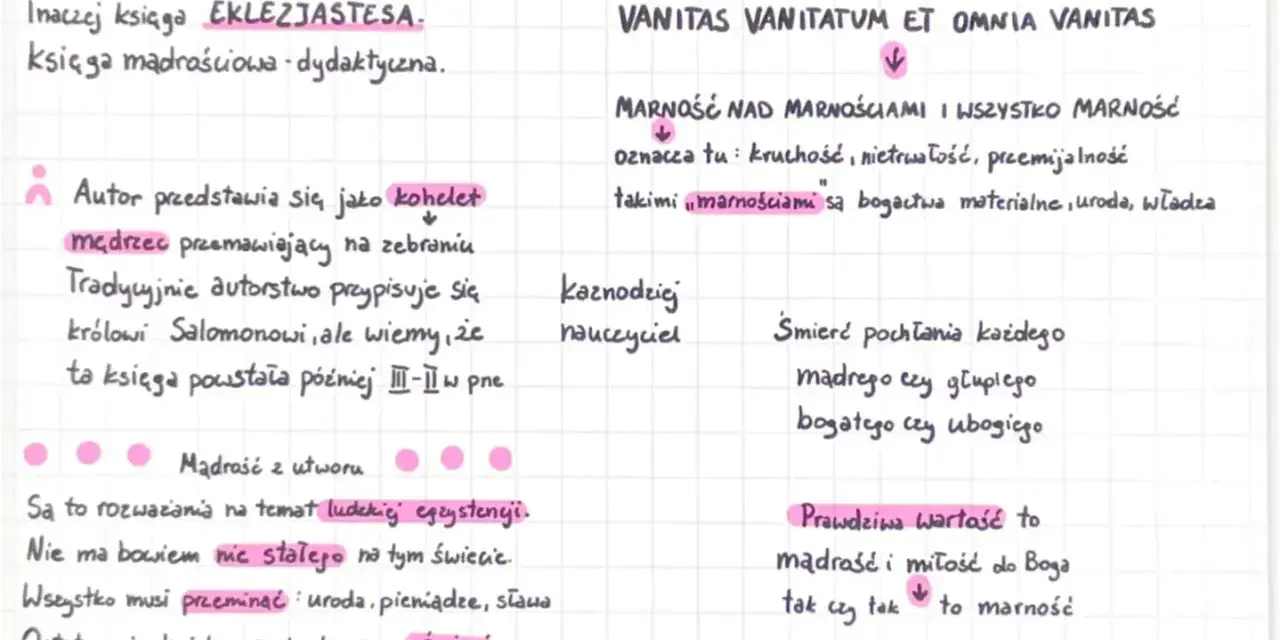 Inaczej księga EKLEZJASTESA.
księga mądrościowa - dydaktyczna.
Autor przedstawia się jako kohelet
mędrzec przemawiający na zebraniu
Tradycyjnie autorstwo przypisuje się
królowi Salomonowi, ale wiemy, że
ta księga powstała później III-II w pne
kaznodziej
nauczyciel
Mądrość z utworu
Są to rozważania na temat ludzkiej egzystencji.
Nie ma bowiem nic stałego na tym świecie.
Wszystko musi przeminąć : uroda, pieniądze, sława
VANITAS VANITATUM ET OMNIA VANITAS
MARNOŚĆ NAD MARNOŚCIAMI I WSZYSTKO MARNOŚĆ
oznacza tu : kruchość, nietrwałość, przemijalność
takimi „marnościami" są bogactwa materialne, uroda, władza
Śmierć pochłania każdego
mądrego czy głupiego
bogatego czy ubogiego
Prawdziwa wartość to
mądrość i miłość do Boga
tak czy tak to marność